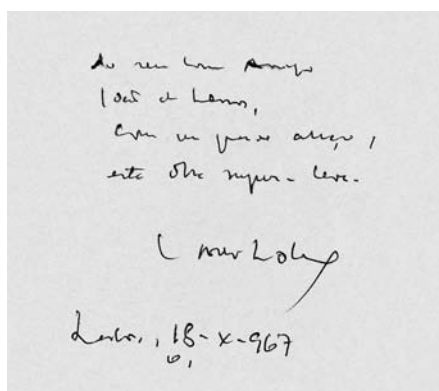 Ao seu bom amigo
José de Lemos,
com um grande abraço,
esta obra super-leve.
Lisboa, 18-X-967